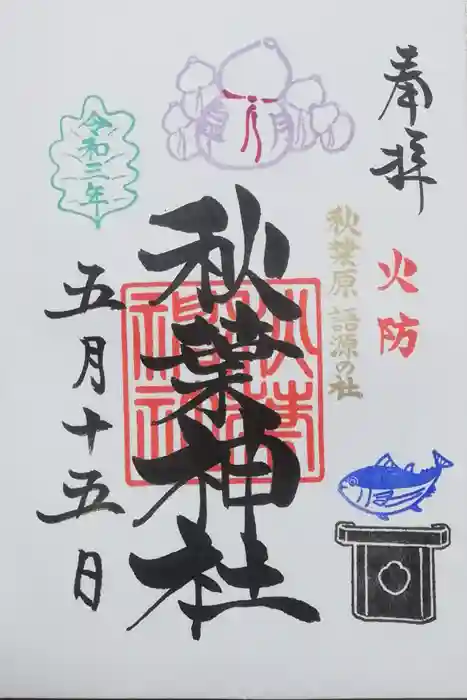 奉拝
火防
秋葉原 語源の社
秋葉神社
秋葉神社
令和二年
五月十五日